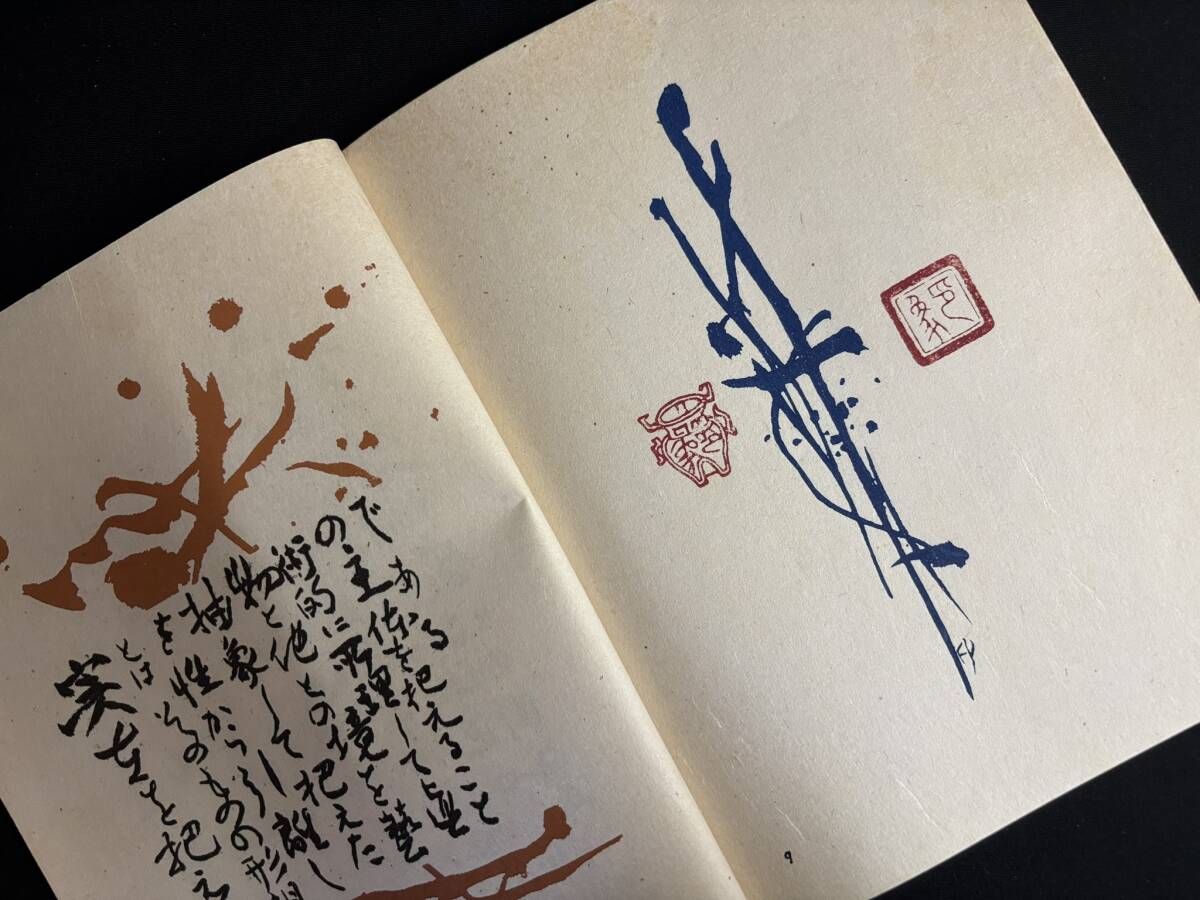 実在を把え
とはそのものの形相
を性から引離し
抽象して把えた
物と他との境を藝
術的に処理して眞
の主体を把えること
である
9